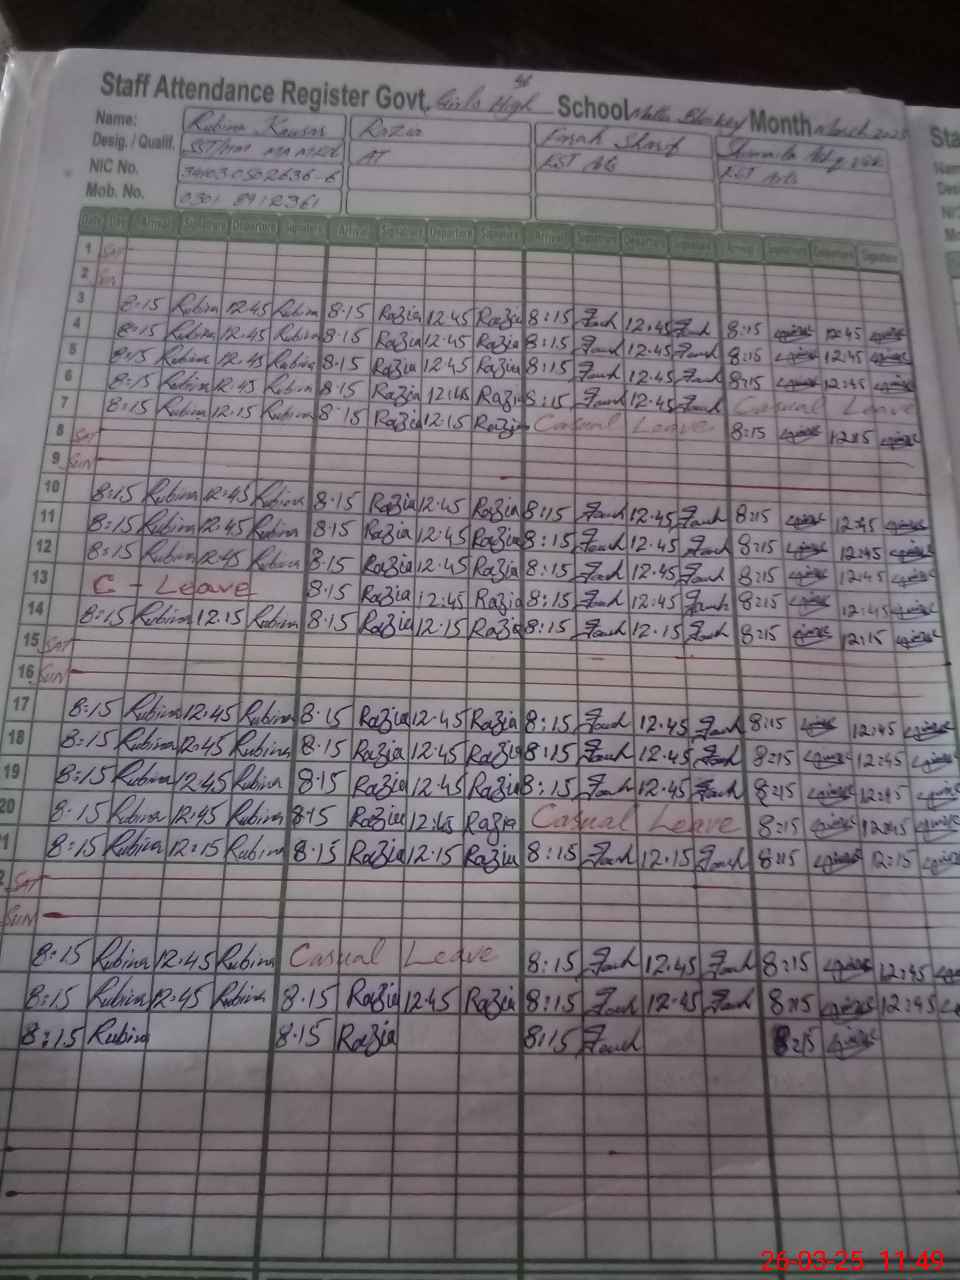 Staff Attendance Register Govt. Girls High School Month March 2025
Name: Rubina Kausar Razia Farah Sharif
Desig. / Qualif. SST/HM MA M.Ed AT EST Arts EST Arts
NIC No.
Mob. No.
Date Day Arrival Signature Departure Signature Arrival Signature Departure Signature Arrival Signature Departure Signature Arrival Signature Departure Signature
1 SAT
2 Sun
3 8:15 Rubina 12.45 Rubina 8.15 Razia 12.45 Razia 8:15 Farah 12.45 Farah 8:15 12:45
4 8:15 Rubina 12.45 Rubina 8.15 Razia 12.45 Razia 8:15 Farah 12.45 Farah 8:15 12:45
5 8:15 Rubina 12.45 Rubina 8.15 Razia 12.45 Razia 8:15 Farah 12.45 Farah 8:15 12:45
6 8:15 Rubina 12.45 Rubina 8.15 Razia 12.45 Razia 8:15 Farah 12.45 Farah Casual Leave
7 8:15 Rubina 12.15 Rubina 8.15 Razia 12.15 Razia Casual Leave 8:15 12:15
8 SAT
9 Sun
10 8:15 Rubina 12.45 Rubina 8.15 Razia 12.45 Razia 8:15 Farah 12.45 Farah 8:15 12:45
11 8:15 Rubina 12.45 Rubina 8.15 Razia 12.45 Razia 8:15 Farah 12.45 Farah 8:15 12:45
12 8:15 Rubina 12.45 Rubina 8.15 Razia 12.45 Razia 8:15 Farah 12.45 Farah 8:15 12:45
13 C - Leave 8.15 Razia 12.45 Razia 8:15 Farah 12.45 Farah 8:15 12:45
14 8:15 Rubina 12.15 Rubina 8.15 Razia 12.15 Razia 8:15 Farah 12.15 Farah 8:15 12:15
15 SAT
16 Sun
17 8:15 Rubina 12.45 Rubina 8.15 Razia 12.45 Razia 8:15 Farah 12.45 Farah 8:15 12:45
18 8:15 Rubina 12.45 Rubina 8.15 Razia 12.45 Razia 8:15 Farah 12.45 Farah 8:15 12:45
19 8:15 Rubina 12.45 Rubina 8.15 Razia 12.45 Razia 8:15 Farah 12.45 Farah 8:15 12:45
20 8:15 Rubina 12.45 Rubina 8.15 Razia 12.45 Razia Casual Leave 8:15 12:45
8:15 Rubina 12.15 Rubina 8.15 Razia 12.15 Razia 8:15 Farah 12.15 Farah 8:15 12:15
SAT
Sun
8:15 Rubina 12.45 Rubina Casual Leave 8:15 Farah 12.45 Farah 8:15 12:45
8:15 Rubina 12.45 Rubina 8.15 Razia 12.45 Razia 8:15 Farah 12.45 Farah 8:15 12:45
8:15 Rubina 8.15 Razia 8:15 Farah 8:15
26-03-25 11:49